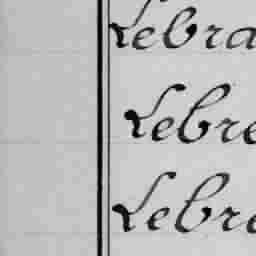 Lebra
Lebre
Lebre